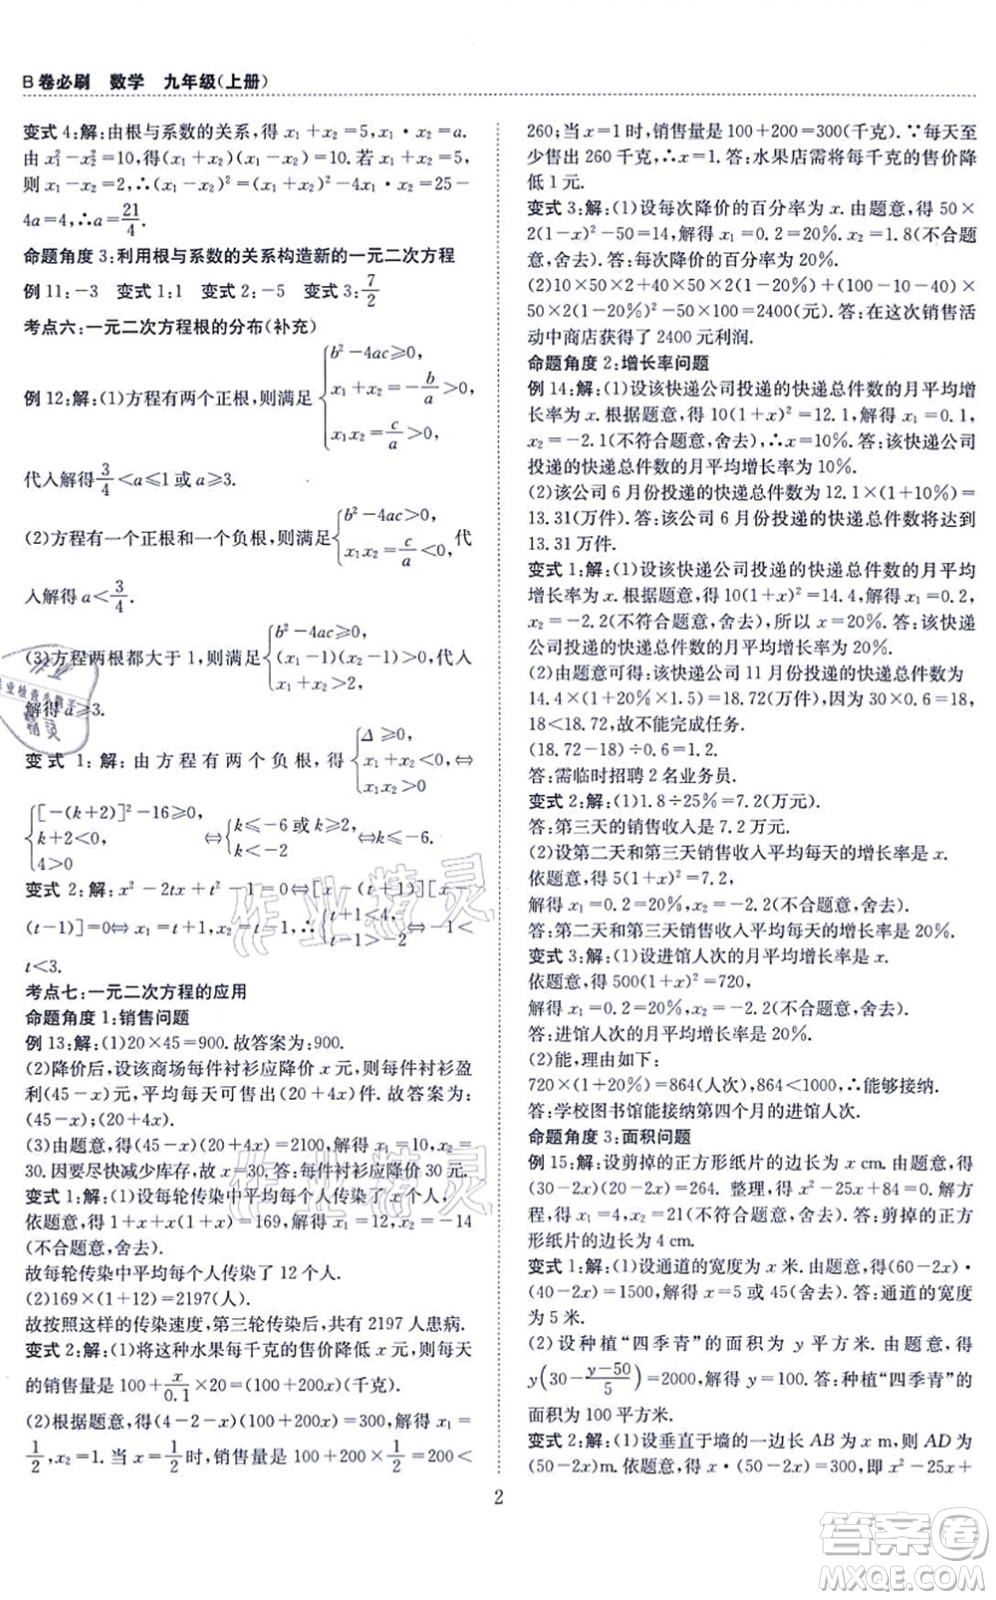 B卷必刷 数学 九年级(上册)
变式 4:解:由根与系数的关系,得 x₁+x₂=5,x₁·x₂=a.
由 x₁²-x₂²=10,得(x₁+x₂)(x₁-x₂)=10. 若 x₁+x₂=5,
则 x₁-x₂=2,∴(x₁-x₂)²=(x₁+x₂)²-4x₁·x₂=25-
4a=4,∴a=21/4.
命题角度 3:利用根与系数的关系构造新的一元二次方程
例 11:-3 变式 1:1 变式 2:-5 变式 3:7/2
考点六:一元二次方程根的分布(补充)
例 12:解:(1)方程有两个正根,则满足{b²-4ac≥0, x₁+x₂=-b/a>0, x₁x₂=c/a>0,
代入解得 3/4<a≤1 或 a≥3.
(2)方程有一个正根和一个负根,则满足{b²-4ac>0, x₁x₂=c/a<0, 代
入解得 a<3/4.
(3)方程两根都大于 1,则满足{b²-4ac≥0, (x₁-1)(x₂-1)>0, x₁+x₂>2, 代入
解得 a≥3.
变式 1:解:由方程有两个负根,得{Δ≥0, x₁+x₂<0, x₁x₂>0 ⇔
{[-(k+2)]²-16≥0, k+2<0, 4>0 ⇔{k≤-6 或 k≥2, k<-2 ⇔k≤-6.
变式 2:解:x²-2tx+t²-1=0⇔[x-(t+1)][x-
(t-1)]=0⇔x₁=t+1,x₂=t-1,∴{t+1<4, t-1>-2 ⇔-1<
t<3.
考点七:一元二次方程的应用
命题角度 1:销售问题
例 13:解:(1)20×45=900. 故答案为:900.
(2)降价后,设该商场每件衬衫应降价 x 元,则每件衬衫盈
利(45-x)元,平均每天可售出(20+4x)件. 故答案为:
(45-x);(20+4x).
(3)由题意,得(45-x)(20+4x)=2100,解得 x₁=10,x₂=
30. 因要尽快减少库存,故 x=30. 答:每件衬衫应降价 30 元.
变式 1:解:(1)设每轮传染中平均每个人传染了 x 个人,
依题意,得 1+x+x(1+x)=169,解得 x₁=12,x₂=-14
(不合题意,舍去).
故每轮传染中平均每个人传染了 12 个人.
(2)169×(1+12)=2197(人).
故按照这样的传染速度,第三轮传染后,共有 2197 人患病.
变式 2:解:(1)将这种水果每千克的售价降低 x 元,则每天
的销售量是 100+x/0.1×20=(100+200x)(千克).
(2)根据题意,得(4-2-x)(100+200x)=300,解得 x₁=
1/2,x₂=1. 当 x=1/2时,销售量是 100+200×1/2=200<
260;当 x=1 时,销售量是 100+200=300(千克). ∵每天至
少售出 260 千克,∴x=1. 答:水果店需将每千克的售价降
低 1 元.
变式 3:解:(1)设每次降价的百分率为 x. 由题意,得 50×
2(1-x)²-50=14,解得 x₁=0.2=20%,x₂=1.8(不合题
意,舍去). 答:每次降价的百分率为 20%.
(2)10×50×2+40×50×2(1-20%)+(100-10-40)×
50×2(1-20%)²-50×100=2400(元). 答:在这次销售活
动中商店获得了 2400 元利润.
命题角度 2:增长率问题
例 14:解:(1)设该快递公司投递的快递总件数的月平均增
长率为 x. 根据题意,得 10(1+x)²=12.1,解得 x₁=0.1,
x₂=-2.1(不符合题意,舍去),∴x=10%. 答:该快递公司
投递的快递总件数的月平均增长率为 10%.
(2)该公司 6 月份投递的快递总件数为 12.1×(1+10%)=
13.31(万件). 答:该公司 6 月份投递的快递总件数将达到
13.31 万件.
变式 1:解:(1)设该快递公司投递的快递总件数的月平均
增长率为 x. 由题意,得 10(1+x)²=14.4,解得 x₁=0.2,
x₂=-2.2(不符合题意,舍去),所以 x=20%. 答:该快递公
司投递的快递总件数的月平均增长率为 20%.
(2)由题意可得:该快递公司 11 月份投递的快递总件数为
14.4×(1+20%×1.5)=18.72(万件). ∵30×0.6=18,
18<18.72,故不能完成任务.
(18.72-18)÷0.6=1.2.
答:需临时招聘 2 名业务员.
变式 2:解:(1)1.8÷25%=7.2(万元).
答:第三天的销售收入是 7.2 万元.
(2)设第二天和第三天销售收入平均每天的增长率是 x.
依题意,得 5(1+x)²=7.2,
解得 x₁=0.2=20%,x₂=-2.2(不合题意,舍去).
答:第二天和第三天销售收入平均每天的增长率是 20%.
变式 3:解:(1)设进馆人次的月平均增长率为 x.
依题意,得 500(1+x)²=720,
解得 x₁=0.2=20%,x₂=-2.2(不合题意,舍去).
答:进馆人次的月平均增长率是 20%.
(2)能,理由如下:
720×(1+20%)=864(人次),864<1000,∴能够接纳.
答:学校图书馆能接纳第四个月的进馆人次.
命题角度 3:面积问题
例 15:解:设剪掉的正方形纸片的边长为 x cm. 由题意,得
(30-2x)(20-2x)=264. 整理,得 x²-25x+84=0. 解方
程,得 x₁=4,x₂=21(不符合题意,舍去). 答:剪掉的正方
形纸片的边长为 4 cm.
变式 1:解:(1)设通道的宽度为 x 米. 由题意,得(60-2x)·
(40-2x)=1500,解得 x=5 或 45(舍去). 答:通道的宽度
为 5 米.
(2)设种植“四季青”的面积为 y 平方米. 由题意,得
y(30-(y-50)/5)=2000,解得 y=100. 答:种植“四季青”的
面积为 100 平方米.
变式 2:解:(1)设垂直于墙的一边长 AB 为 x m,则 AD 为
(50-2x)m. 依题意,得 x·(50-2x)=300,即 x²-25x+
2
作业精灵
作业精灵
作业检查小帮手
精灵
答案卷
MXQE.COM